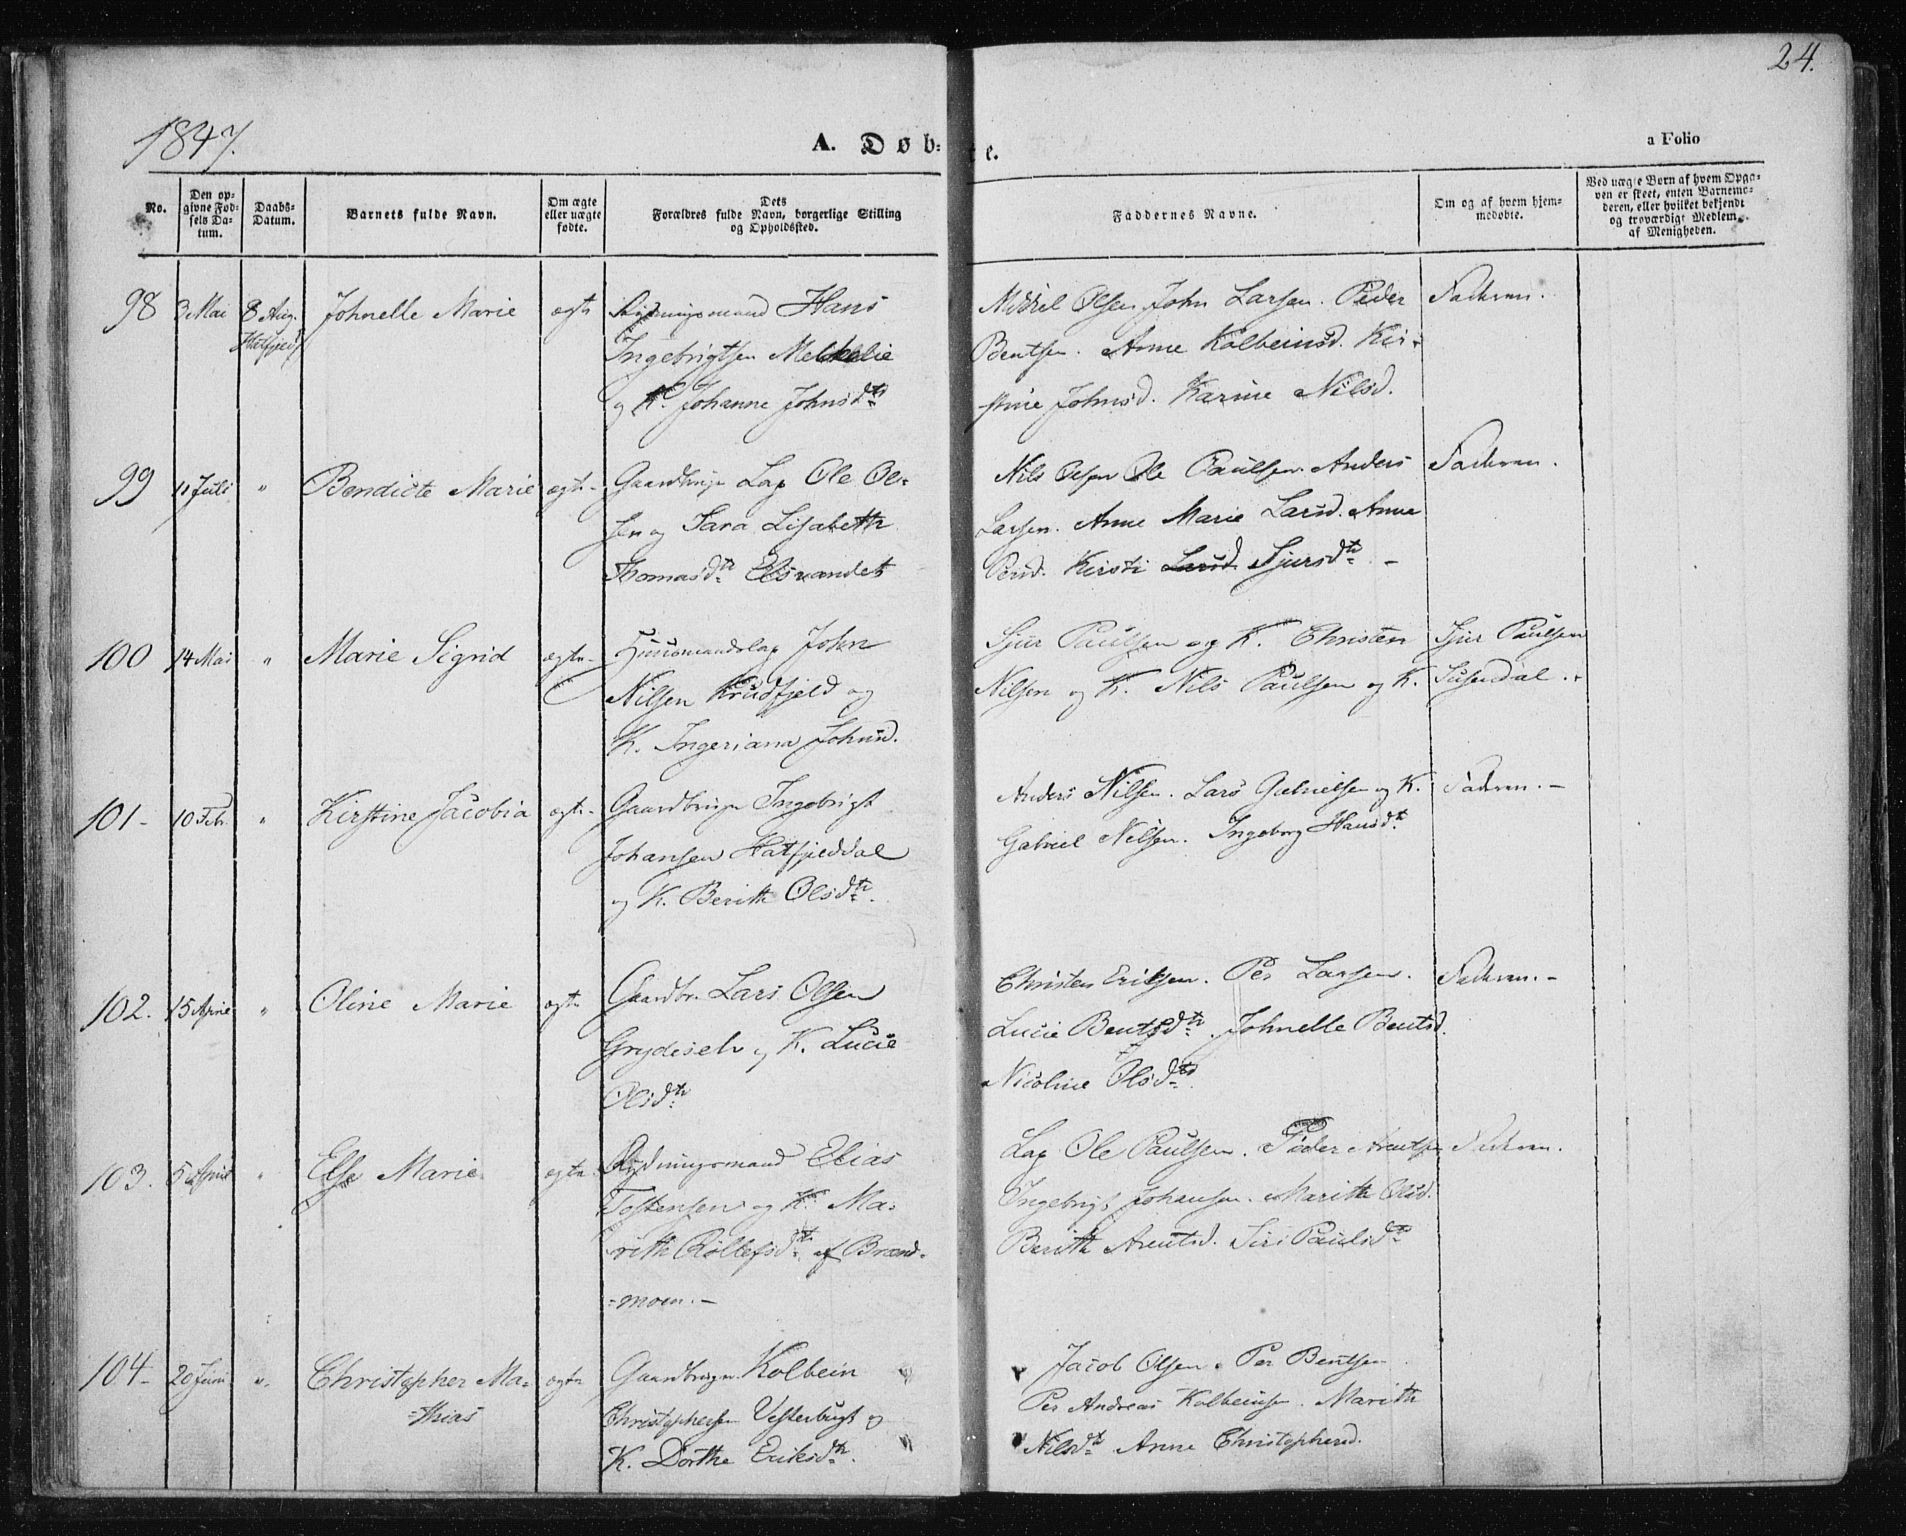 24.
1847.
A. Døbte.
a Folio
No.
Den op-
givne Fød-
sels Da-
tum.
Daabs-
Datum.
Barnets fulde Navn.
Om ægte
eller uægte
fødte.
Dets
Forældres fulde Navn, borgerlige Stilling
og Opholdssted.
Faddernes Navne.
Om og af hvem hjem-
medøbte.
Ved uægte Børn af hvem Opga-
ven er skeet, enten Barnemo-
deren, eller hvilket bekjendt
og troværdigt Medlem
af Menigheden.
98 3 Mai 8 Aug. Johnelle Marie ægte Rydningsmand Hans
Hatfjeld
Ingebrigtsen
og K. Johanne Johnsdtr
Mikkel Olsen John Larsen. Peder
Bentsen. Anne Kolbeinsd. Kir-
stine Johnsd. Karine Nilsd.
Faderen.
99 11 Juli " Bendicte Marie ægte Gaardbruger Lap Ole Ol-
sen og Sara Lisabeth
Thomasdtr Elsvandet
Nils Olsen Ole Paulsen Anders
Larsen. Anne Marie Larsd. Anne
Kirsti Larsd. Sjursdtr. -
Faderen.
100 14 Mai " Marie Sigrid ægte Huusmandslap John
Nilsen Krudfjeld og
K. Ingeriana Johnsd.
Sjur Paulsen og K. Christen
Nilsen og K. Nils Paulsen og K.
Sjur Paulsen
Susendal.
101 - 10 Feb. " Kirstine Jacobia ægte Gaardbruger Ingebrigt
Johansen Hatfjelddal
og K. Berith Olsdtr.
Anders Nilsen. Lars Gabrielsen og K.
Gabriel Nilsen. Ingeborg Hansdtr
Faderen. -
102. 15 April " Oline Marie ægte Gaardbr. Lars Olsen
Grydeselv og K. Lucie
Olsdtr
Christen Eriksen. Per Larsen.
Lucie Bentsdtr. Johnelle Bentsd.
Nicoline Olsdtr.
Faderen. -
103. 5 April " Else Marie ægte Rydningsmand Elias
Tostensen og K. Ma-
rith Rollefsdtr af Brand-
=moen. -
Lap Ole Paulsen. Peder Arentsen
Ingebrigt Johansen. Marith Olsd.
Berith Arentsd. Siri Paulsdtr
Faderen.
104 - 20 Juni " Christopher Ma-
=thias
ægte Gaardbruger Kolbein
Christophersen Vesterbugt og
K. Dorthe Eriksdtr.
Jacob Olsen. Per Bentsen
Per Andreas Kolbeinsen. Marith
Nilsdtr Anne Christophersd.